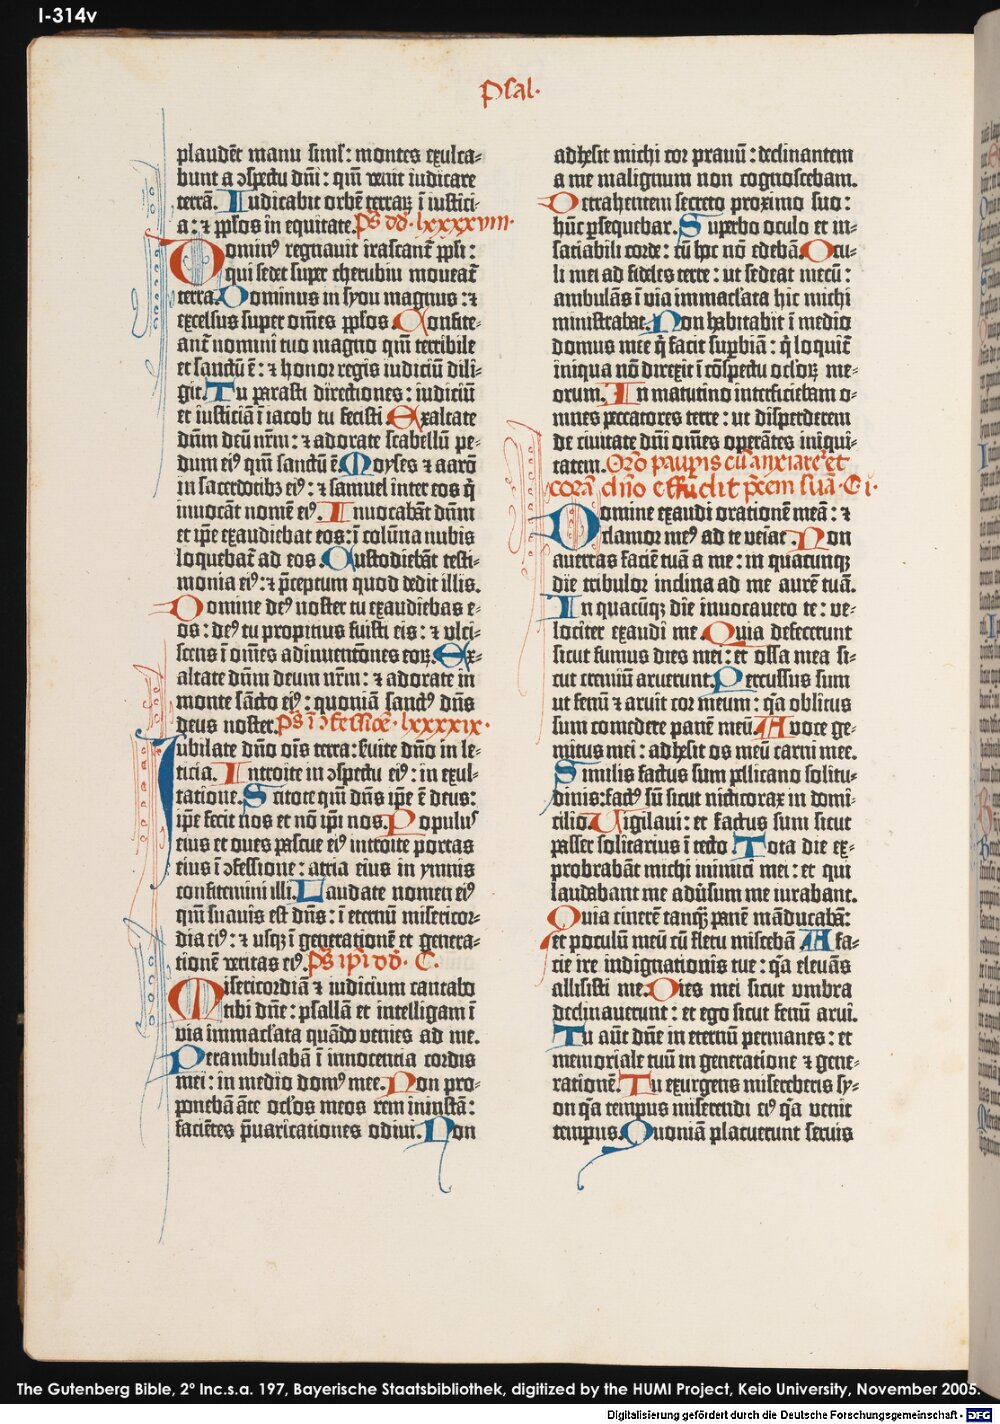 I-314v
Psal.
plaudēt manu simľ: montes exulta-
bunt a ɔspectu dñi: qm̄ venit iudicare
terrā. Iudicabit orbē terraꝝ ī iustici-
a: ⁊ ppľos in equitate. Ps̄ dd̄. lxxxxviii.
Dominꝰ regnauit irascant᷑ ppľi:
qui sedet super cherubin moueat᷑
terra. Dominus in syon magnus: ⁊
excelsus super om̄es ppľos. Confite-
ant᷑ nomini tuo magno qm̄ terribile
et sanctū ē: ⁊ honor regis iudiciū dili-
git. Tu parasti directiones: iudiciū
et iusticiā ī iacob tu fecisti. Exaltate
dn̄m deū nr̄m: ⁊ adorate scabellū pe-
dum eiꝰ qm̄ sanctū ē. Moyses ⁊ aarō
in sacerdotibꝫ eiꝰ: ⁊ samuel inter eos q̄
inuocāt nomē eiꝰ. Inuocabāt dn̄m
et ip̄e exaudiebat eos: ī colūna nubis
loquebat᷑ ad eos. Custodiebāt testi-
monia eiꝰ: ⁊ p̄ceptum quod dedit illis.
Domine deꝰ noster tu exaudiebas e-
os: deꝰ tu propitius fuisti eis: ⁊ vlci-
scens ī om̄es adinuentōnes eoꝝ. Ex-
altate dn̄m deum nr̄m: ⁊ adorate in
monte sāc̄to eiꝰ: quoniā sanctꝰ dn̄s
deus noster. Ps̄ ī ɔfessiōe. lxxxxix.
Iubilate dn̄o oīs terra: ẜuite dn̄o in le-
ticia. Introite in ɔspectu eiꝰ: in exul-
tatione. Scitote qm̄ dn̄s ip̄e ē deus:
ip̄e fecit nos et nō ip̄i nos. Populuſ
eius et oues pascue eiꝰ introite portas
eius ī ɔfessione: atria eius in ymnis
confitemini illi. Laudate nomen eiꝰ
qm̄ suauis est dn̄s: ī eternū misericor-
dia eiꝰ: ⁊ usqꝫ ī generationē et genera-
tionē veritas eiꝰ. Ps̄ ip̄i dd̄. C.
Misericordiā ⁊ iudicium cantabo
tibi dn̄e: psallā et intelligam ī
via immacľata quādo venies ad me.
Perambulabā ī innocentia cordis
mei: in medio domꝰ mee. Non pro-
ponebā āte ocľos meos rem iniustā:
faciētes p̄uaricationes odiui. Non
adhesit michi cor prauū: declinantem
a me malignum non cognoscebam.
Detrahentem secreto proximo suo:
hūc ꝑsequebar. Superbo oculo et in-
saciabili corde: cū hoc nō edebā. Ocu-
li mei ad fideles terre: ut sedeat mecū:
ambulās ī via immacľata hic michi
ministrabat. Non habitabit ī medio
domus mee q̄ facit suꝑbiā: q̄ loquit᷑
iniqua nō direxit ī cōspectu ocľoꝝ me-
orum. In matutino interficiebam o-
mnes peccatores terre: ut disperderem
de ciuitate dn̄i om̄es operātes iniqui-
tatem. Orō paup̄is cū anxiaret᷑ et
corā dn̄o effudit p̄cem suā. C i.
Domine exaudi orationē meā: ⁊
clamor meꝰ ad te veiat. Non
auertas faciē tuā a me: in quacunqꝫ
die tribulor inclina ad me aurē tuā.
In quacūqꝫ die inuocauero te: ve-
lociter exaudi me. Quia defecerunt
sicut fumus dies mei: et ossa mea si-
cut cremiū aruerunt. Percussus sum
ut fenū ⁊ aruit cor meum: q̄a oblitus
sum comedere panē meū. A voce ge-
mitus mei: adhesit os meū carni mee.
Similis factus sum pellicano solitu-
dinis: factꝰ sū sicut nicticorax in domi-
cilio. Uigilaui: et factus sum sicut
passer solitarius ī tecto. Tota die ex-
probrabāt michi inimici mei: et qui
laudabant me adūsum me iurabant.
Quia cinerē tanqꝫ panē māducabā:
et poculū meū cū fletu miscebā. A fa-
cie ire indignationis tue: q̄a eleuās
allisisti me. Dies mei sicut vmbra
declinauerunt: et ego sicut fenū arui.
Tu aūt dn̄e in eternū permanes: et
memoriale tuū in generatione ⁊ gene-
rationē. Tu exurgens misereberis sy-
on q̄a tempus miserendi eiꝰ q̄a venit
tempus. Quoniā placuerunt seruis
The Gutenberg Bible, 2° Inc.s.a. 197, Bayerische Staatsbibliothek, digitized by the HUMI Project, Keio University, November 2005.
Digitalisierung gefördert durch die Deutsche Forschungsgemeinschaft - DFG